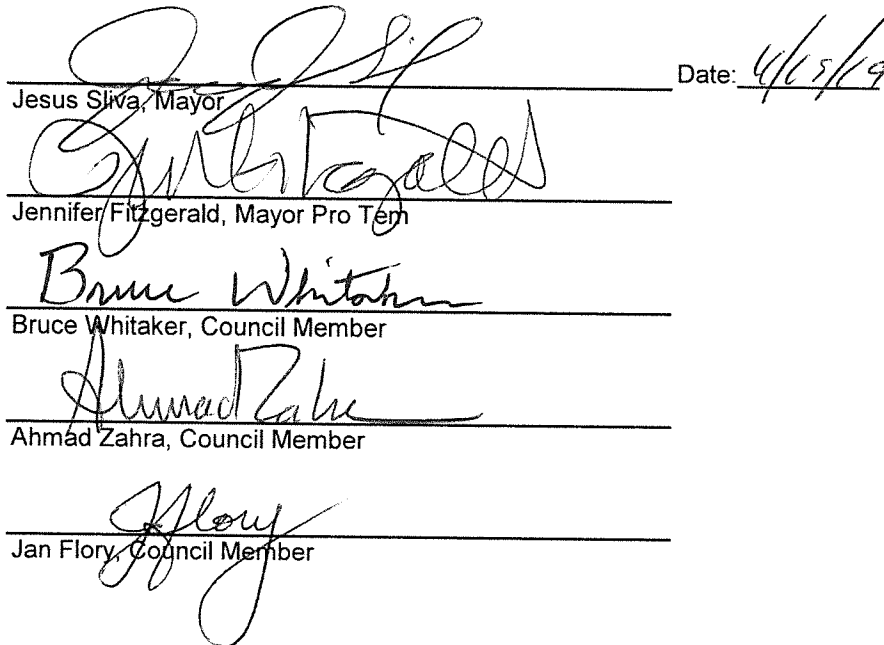 Date:
Jesus Sliva, Mayor
Jennifer Fitzgerald, Mayor Pro Tem
Bruce Whitaker
Bruce Whitaker, Council Member
Ahmad Zahra
Ahmad Zahra, Council Member
JFlory
Jan Flory, Council Member